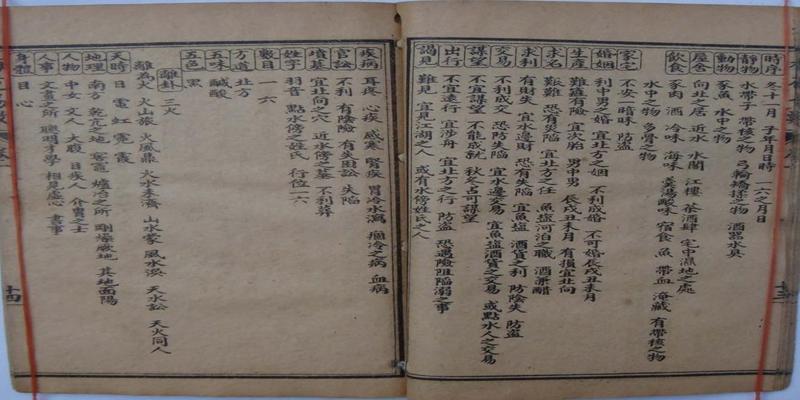 時序 冬十一月 子年月日時 一六之月日
静物 水帶子 帶核之物 弓輪矯揉之物 酒器水具
動物 豕魚 水中之物
屋舍 向北之居 近水 水閣 江樓 茶酒肆 宅中濕地之處
飲食 豕肉 酒 冷味 海味 羹湯酸味 宿食 魚 帶血 淹藏 有帶核之物
水中之物 多骨之物
家宅 不安 暗昧 防盜
婚姻 利中男之婚 宜北方之姻 不利成婚 不可婚辰戌丑未月
生產 難產有險 宜次胎 男 中男 辰戌丑未月 有損宜北向
求名 艱難 恐有災陷 宜北方之任 魚鹽河泊之職 酒兼醋
求利 有財失 宜水邊財 恐有失陷 宜魚鹽 酒貨之利 防陰失 防盜
交易 不利成交 恐防失陷 宜水邊交易 宜魚鹽酒貨之交易 或點水人之交易
謀望 不宜謀望 不能成就 秋冬占可謀望
出行 不宜遠行 宜涉舟 宜北方之行 防盜 恐遇險阻陷溺之事
謁見 難見 宜見江湖之人 或有水傍姓氏之人
疾病 耳疼 心疾 感寒 腎疾 胃冷水瀉 痼冷之病 血病
官訟 不利 有陰險 有失困訟 失陷
墳墓 宜北向之穴 近水傍之墓 不利葬
姓字 羽音 點水傍之姓氏 行位一六
數目 一 六
方道 北方
五味 鹹 酸
五色 黑
離卦 三 火
離為火 火山旅 火風鼎 火水未濟 山水蒙 風水渙 天水訟 天火同人
天時 日 電 虹 霓 霞
地理 南方 乾亢之地 窰竈 爐冶之所 剛燥厥地 其地面陽
人物 中女 文人 大腹 目疾人 介冑之士
人事 文書之所 聰明才學 相見虛心 書事
身體 目 心
十四
十三